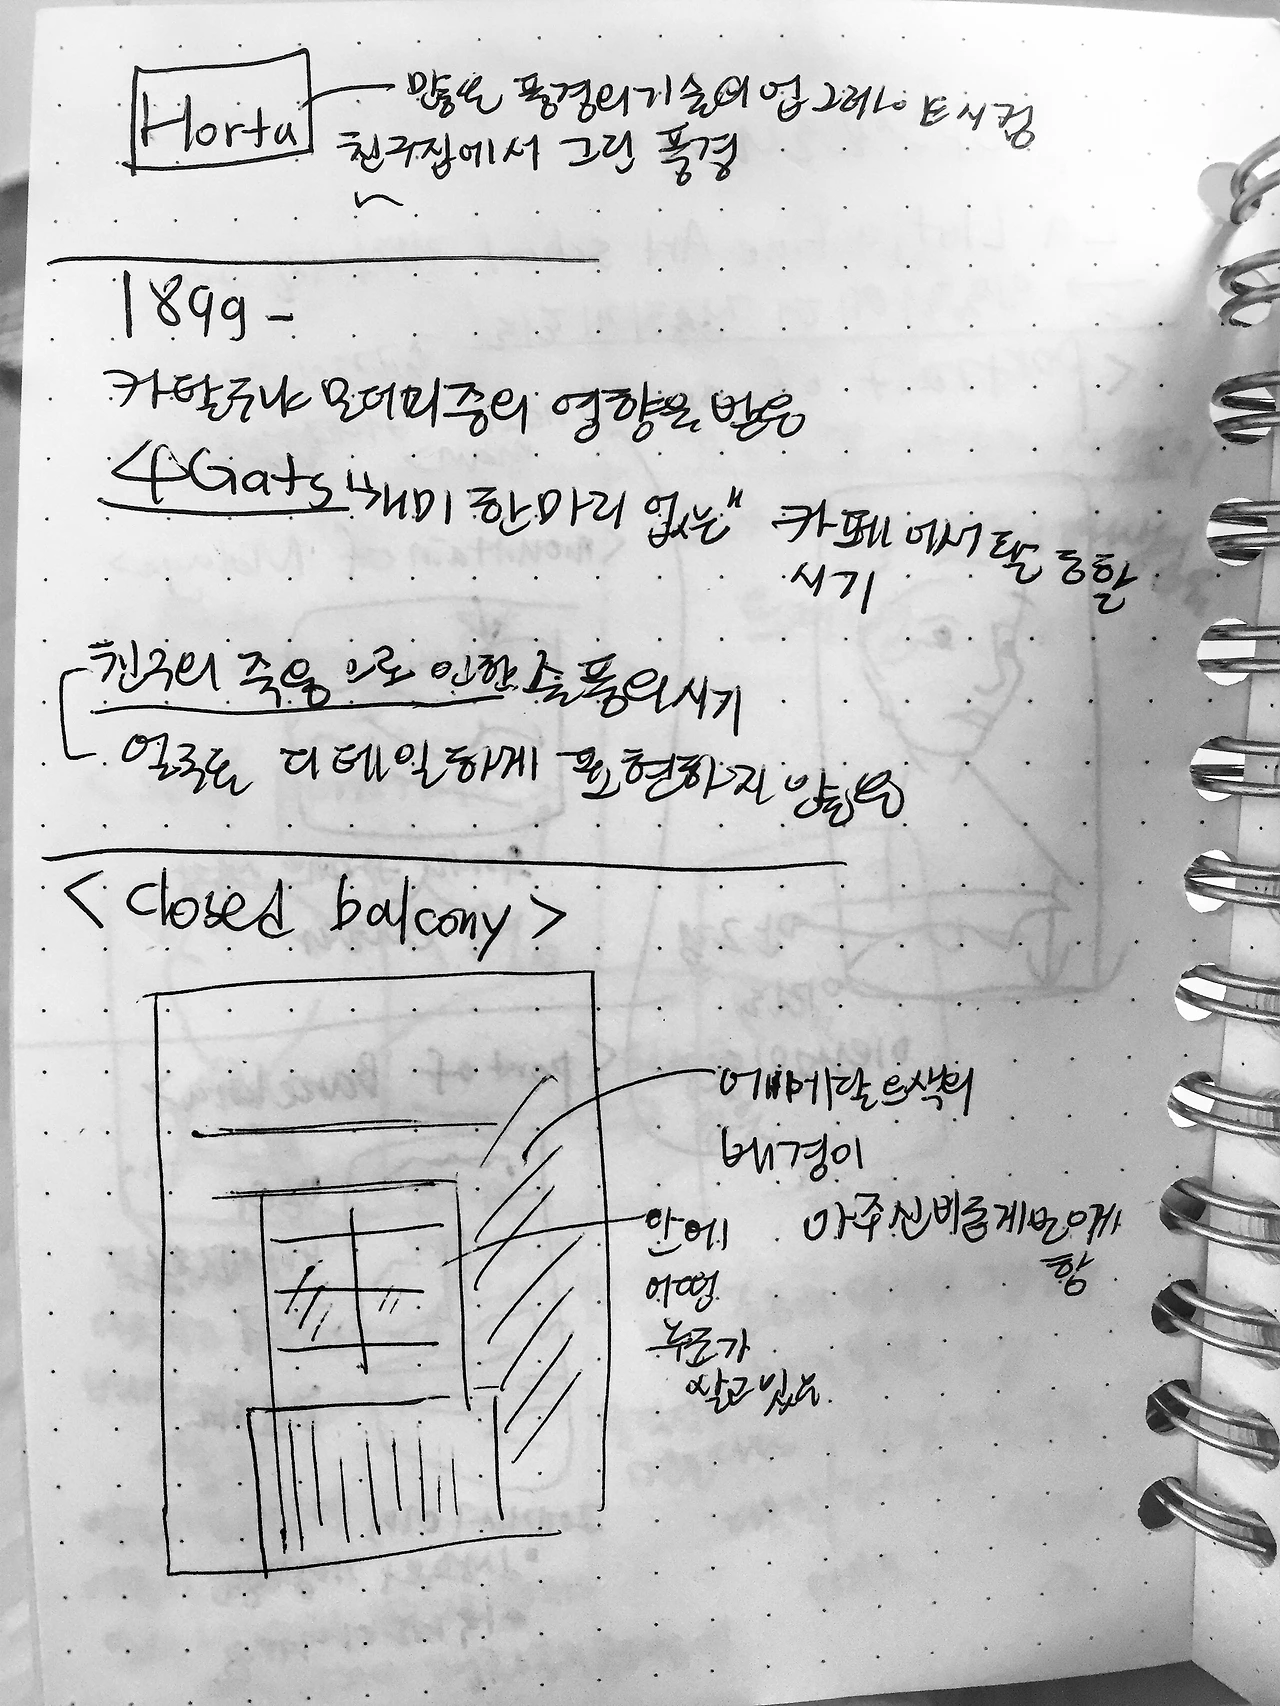 Horta
많은 풍경의 기술의 업그레이드 시킴
친구집에서 그린 풍경
1899 -
카탈루냐 모더미즘의 영향을 받음
4Gats "개미 한마리 없는" 카페에서 활동할
시기
친구의 죽음으로 인한 슬픔의 시기
얼굴도 디테일하게 표현하지 않음
< closed balcony >
에메랄드색의
배경이
아주 신비롭게 보이게
함
안에
어떤
누군가
살고 있는